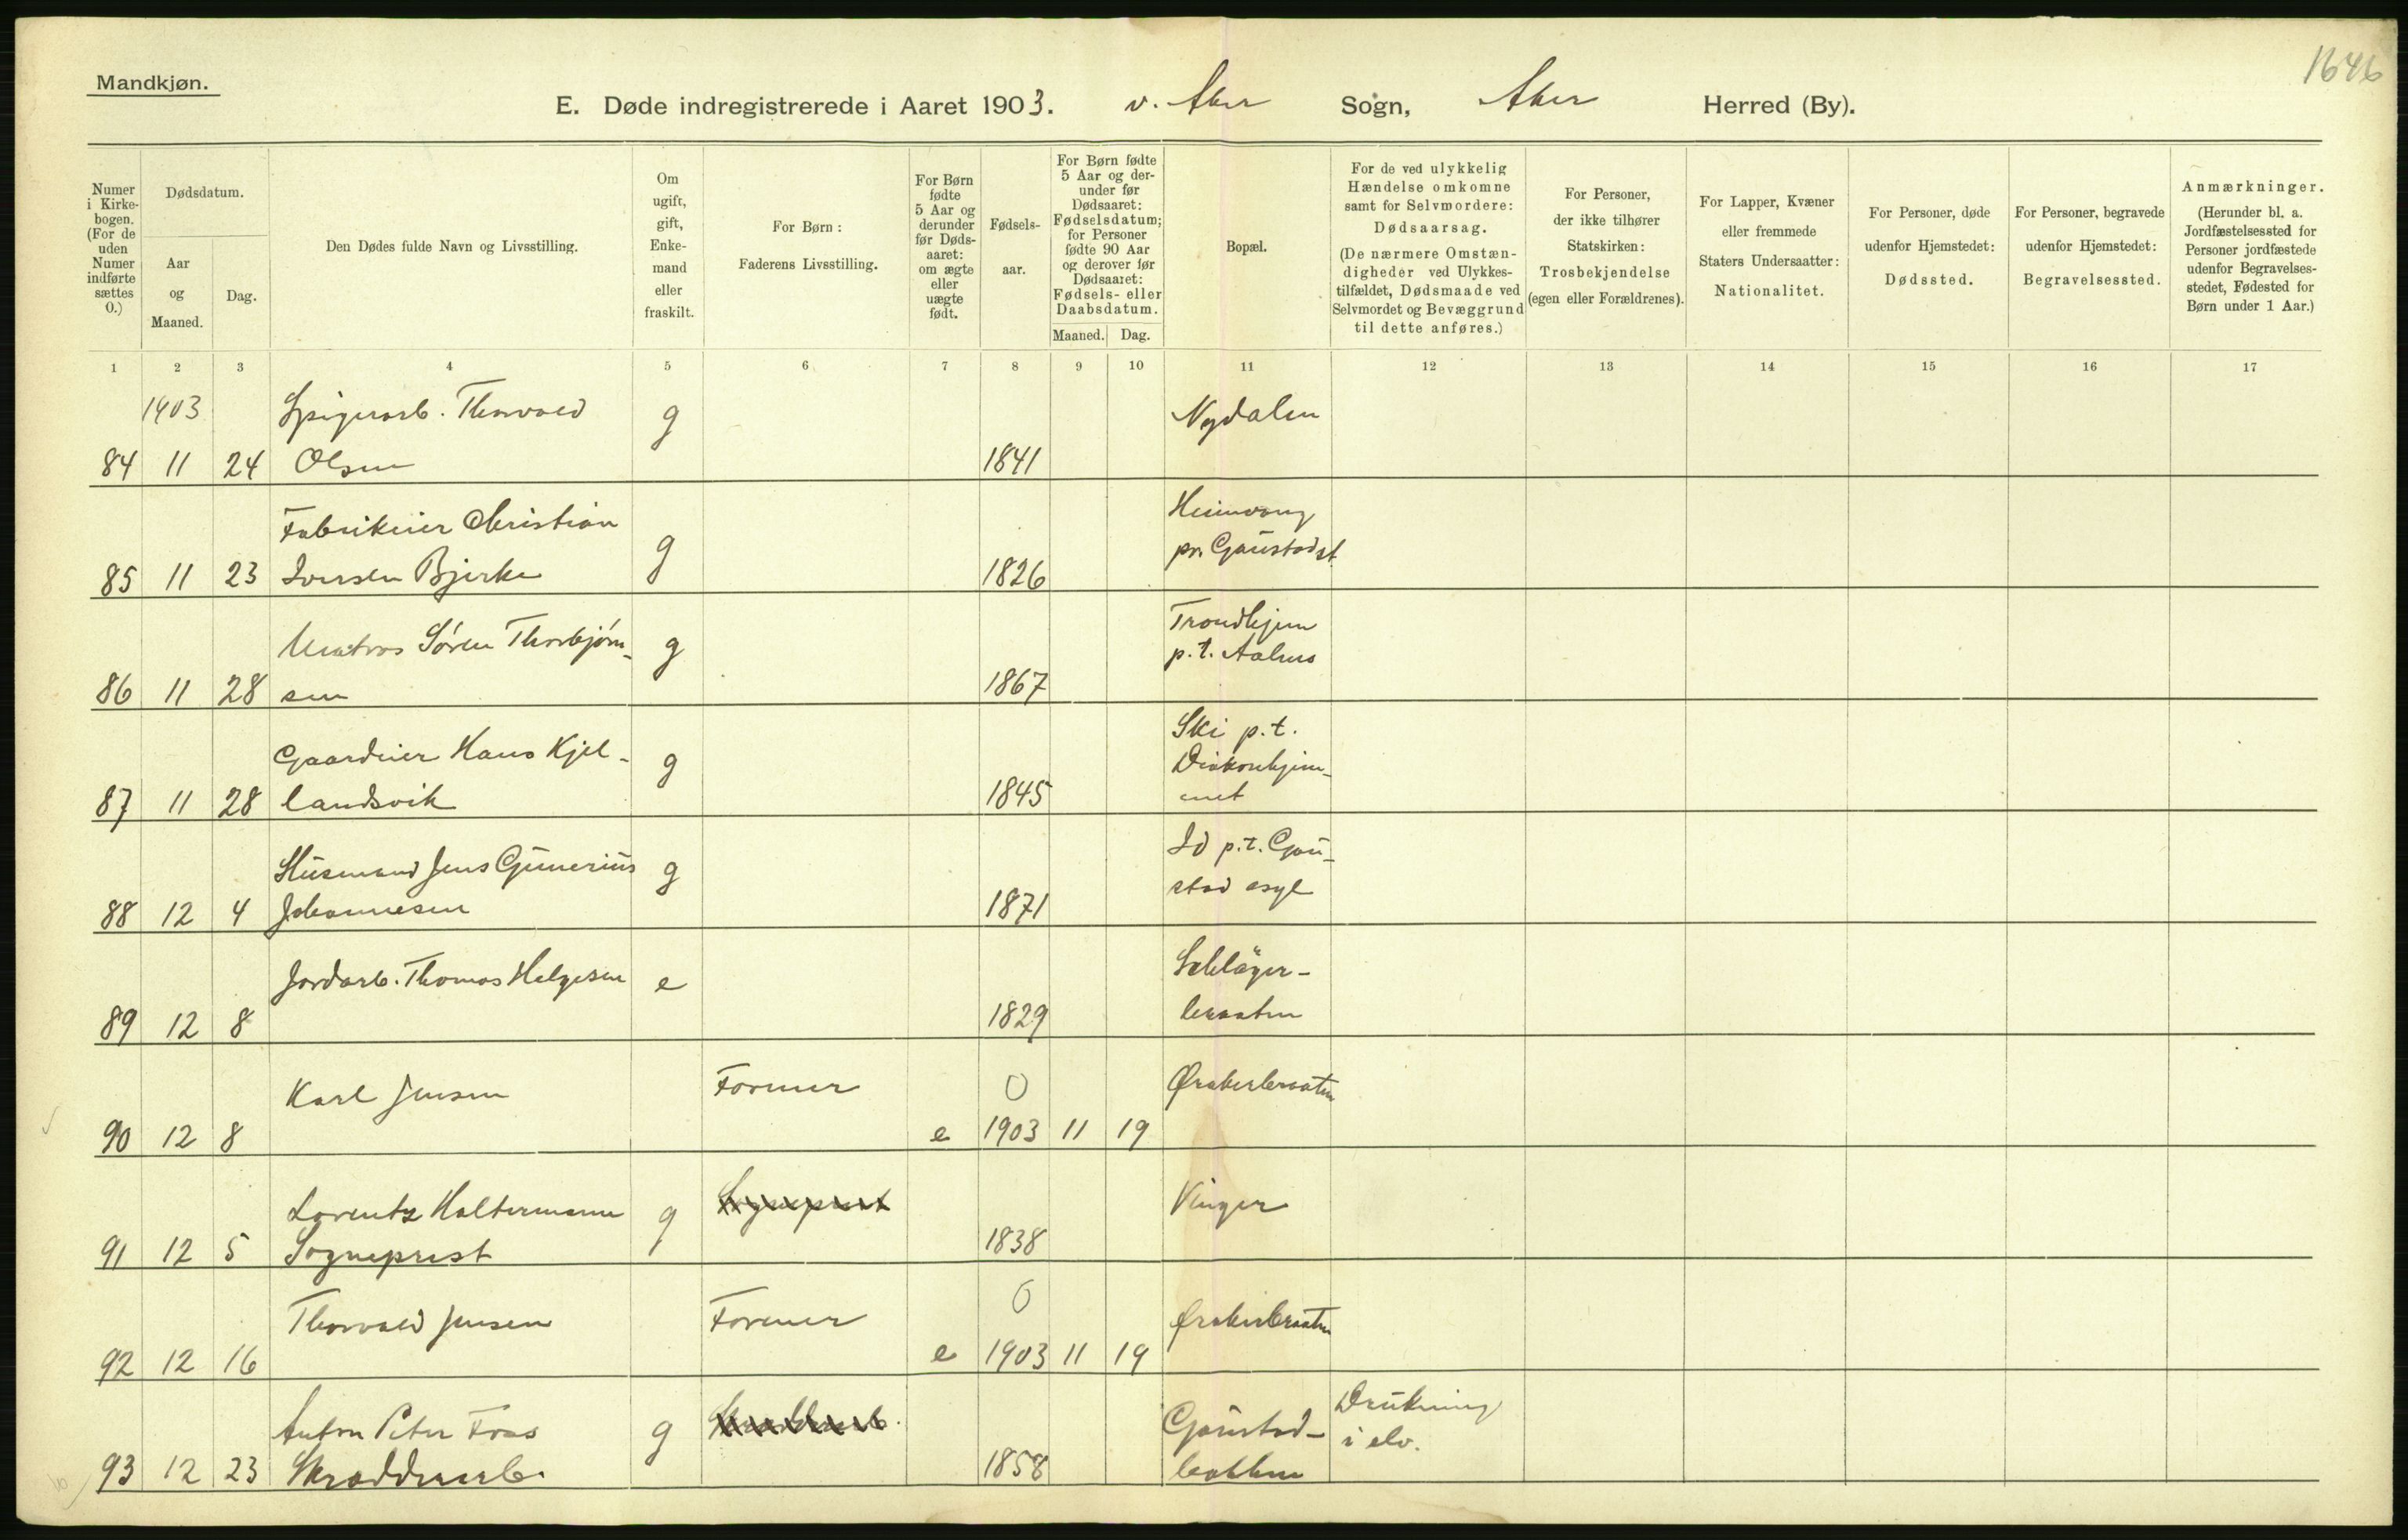 1646
Mandkjøn.
E. Døde indregistrerede i Aaret 1903. v. Aker Sogn, Aker Herred (By).
Numer i Kirke-bogen. (For de uden Numer indførte sættes 0.)
Dødsdatum.
Aar og Maaned.
Dag.
Den Dødes fulde Navn og Livsstilling.
Om ugift, gift, Enke-mand eller fraskilt.
For Børn:
Faderens Livsstilling.
For Børn fødte 5 Aar og derunder før Døds-aaret: om ægte eller uægte født.
Fødsels-aar.
For Børn fødte 5 Aar og der-under før Dødsaaret: Fødselsdatum; for Personer fødte 90 Aar og derover før Dødsaaret: Fødsels- eller Daabsdatum.
Maaned. Dag.
Bopæl.
For de ved ulykkelig Hændelse omkomne samt for Selvmordere: Dødsaarsag. (De nærmere Omstæn-digheder ved Ulykkes-tilfældet, Dødsmaade ved Selvmordet og Bevæggrund til dette anføres.)
For Personer, der ikke tilhører Statskirken: Trosbekjendelse (egen eller Forældrenes).
For Lapper, Kvæner eller fremmede Staters Undersaatter: Nationalitet.
For Personer, døde udenfor Hjemstedet: Dødssted.
For Personer, begravede udenfor Hjemstedet: Begravelsessted.
Anmærkninger. (Herunder bl. a. Jordfæstelsessted for Personer jordfæstede udenfor Begravelses-stedet, Fødested for Børn under 1 Aar.)
1 2 3 4 5 6 7 8 9 10 11 12 13 14 15 16 17
1903 Spigerarb. Thorvald g Nydalen
84 11 24 Olsen 1841
Fabrikeier Christian g Heimvang
85 11 23 Iversen Bjerke 1826 pr. Gaustad st.
Matros Søren Thorbjørn- g Trondhjem
86 11 28 sen 1867 p.t. Aalnes
Gaardeier Hans Kjel- g Ski p.t.
87 11 28 landsvik 1845 Diakonhjem-
met
Husmand Jens Gunerius g Id p.t. Gau-
88 12 4 Johannesen 1871 stad asyl
Jordarb. Thomas Helgesen e Schläger-
89 12 8 1829 braaten
Karl Jensen Former 0 Ørakerbraaten
90 12 8 e 1903 11 19
Lorentz Haltermann g Sogneprest Vinger
91 12 5 Sogneprest 1838
Thorvald Jensen Former 0 Ørakerbraaten
92 12 16 e 1903 11 19
Anton Peter Foss g Skrædderarb. Gaustad- Drukning
93 12 23 Skrædderarb. 1858 bakken i elv.